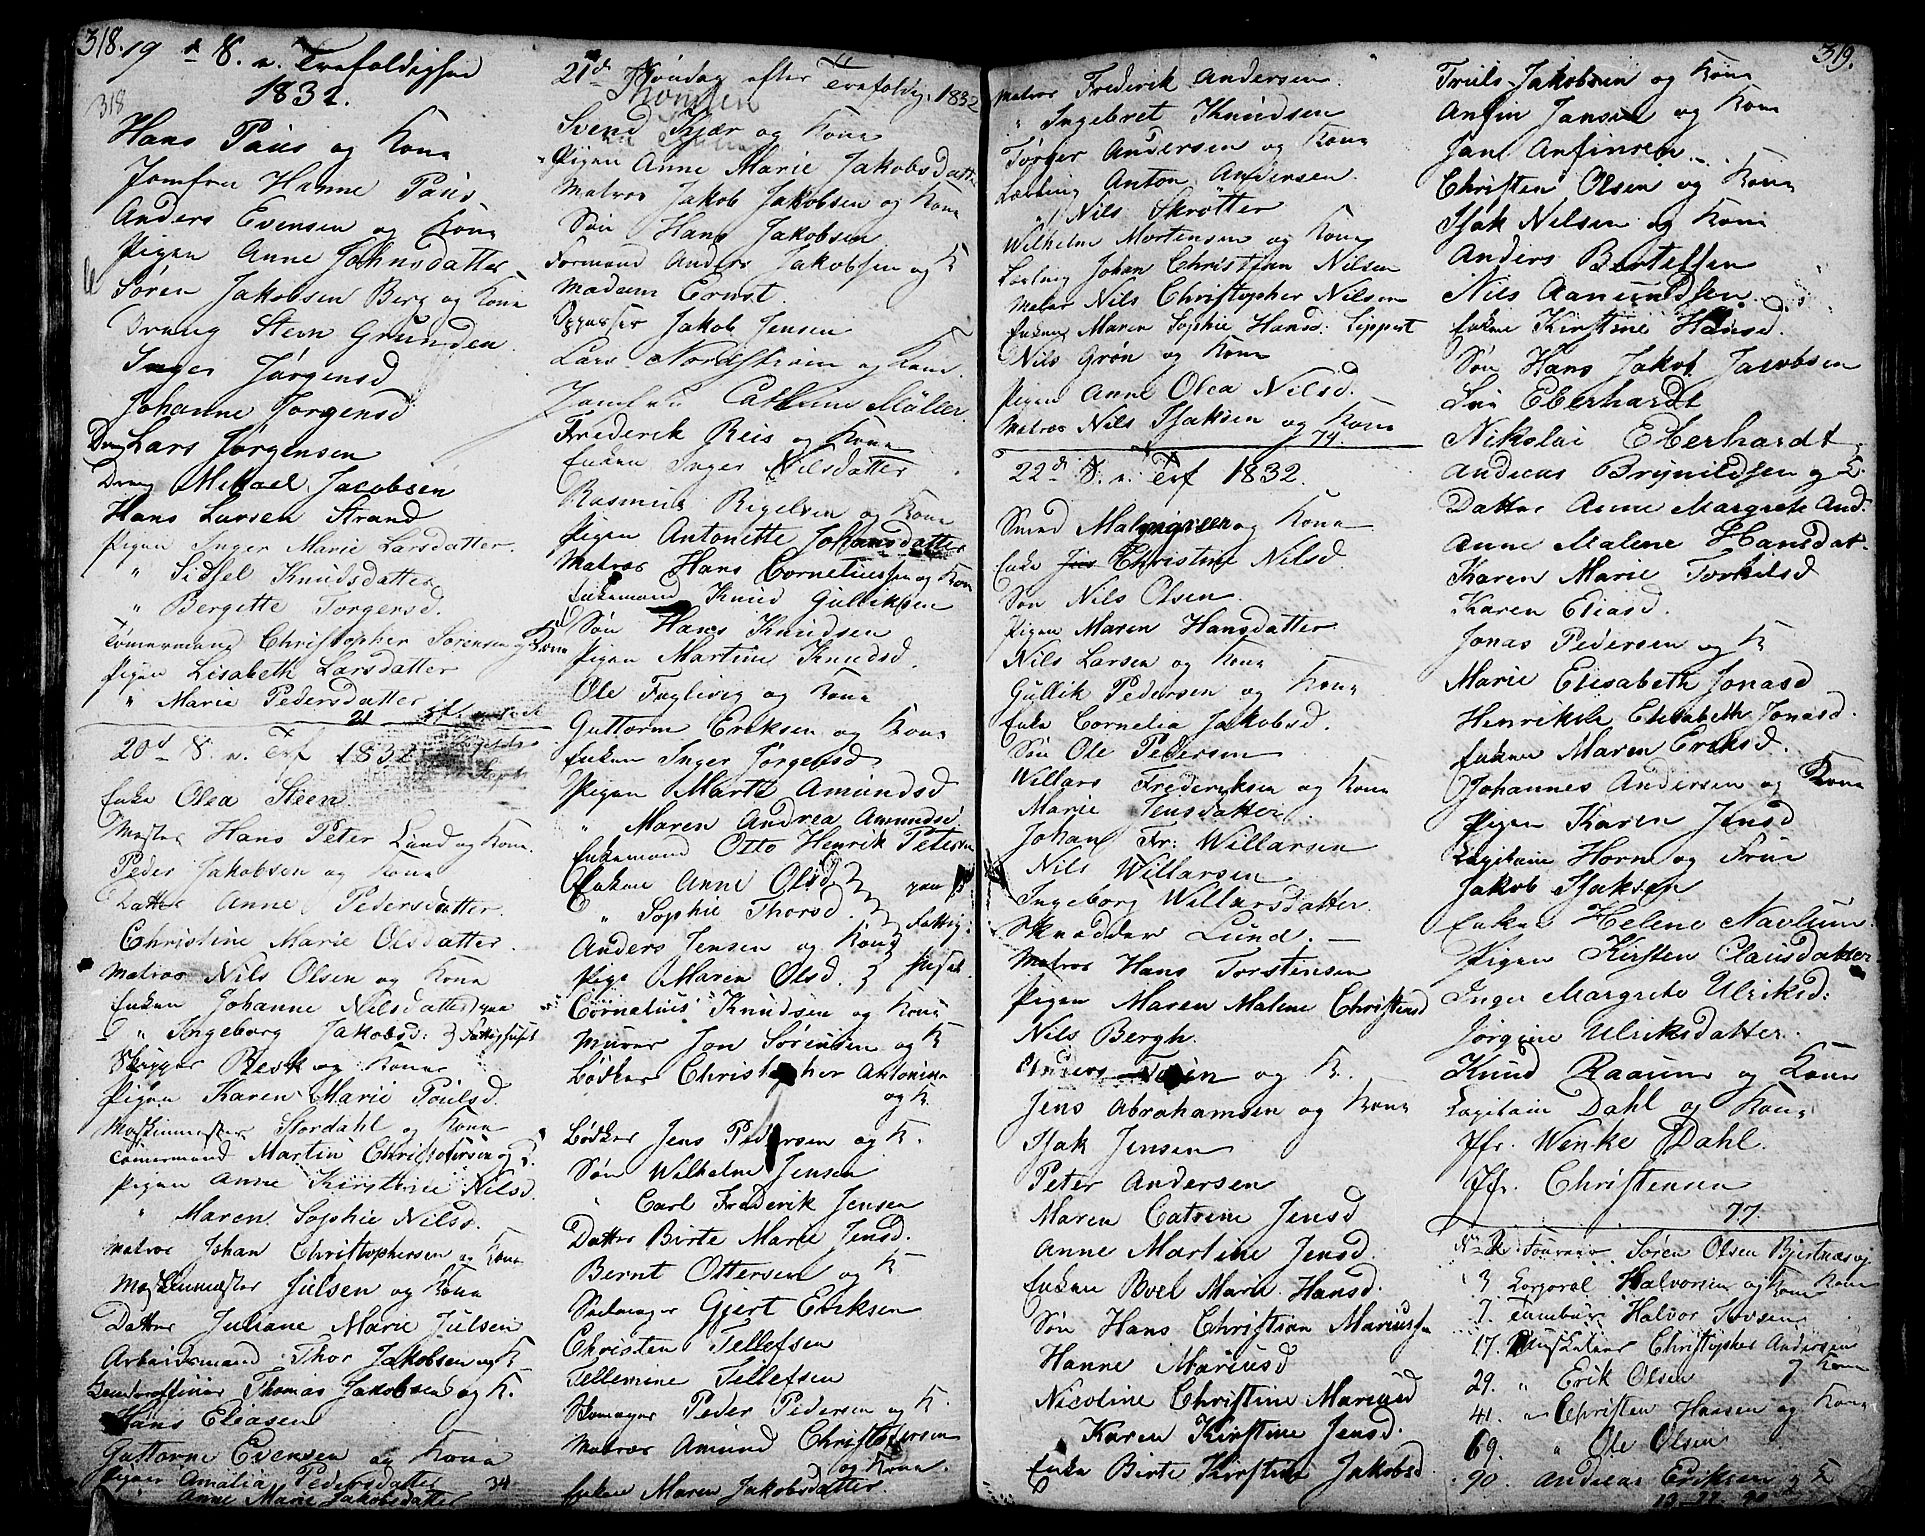 318.
19 d S. e. Trefoldighed
1832.
318
Hans Paus og Kone
Jomfru Hanne Paus
Anders Evensen og Kone
Pigen Anne Johnsdatter
Søren Jakobsen Berg og Kone
Dreng Steen Grunden
Inger Jörgensd
Johanne Jörgensd
Dreng Lars Jørgensen
Dreng Mikael Jacobsen
Hans Larsen Strand
Pigen Inger Marie Larsdatter.
" Sidsel Knudsdatter
" Bergette Torgersd.
Tømermand Christopher Sørensen og Kone
Pigen Lisabeth Larsdatter
" Marie Pedersdatter
21
20d S. e. Tref 1832
Enke Olea Steen
Mester Hans Peter Lund og Kone.
Peder Jakobsen og Kone
Datter Anne Pedersdatter.
Christine Marie Olsdatter.
Matros Nils Olsen og Kone
Enken Johanne Nilsdatter paa
" Ingeborg Jakobsd: Fattighuset
Skipper Beck og Kone
Pigen Karen Marie Poulsd.
Maskinmester Stordahl og Kone
Tømermand Martin Christophersen og K.
Pigen Anne Kirstine Nilsd.
" Maren Sophie Nilsd.
Matros Johan Christophersen og Kone
Maskinmester Julsen og Kone
Datter Juliane Marie Julsen
Arbeidsmand Thor Jakobsen og K
Thomas Jakobsen og K.
Hans Eliasen
Guttorm Evensen og Kone
Pigen Amalia Pedersdatter 34
Anne Marie Jakobsdatter
21d Søndag efter Trefoldig. 1832
Svend Kjær og Kone
Pigen Anne Marie Jakobsdatter
Matros Jakob Jakobsen og Kone
Søn Hans Jakobsen
Formand Anders Jakobsen og K
Madam Ernst.
Oppasser Jakob Jensen
Lars Nordstrøm og Kone.
Jomfru Cathrine Møller
Frederik Reis og Kone
Enken Inger Nilsdatter
Rasmus Regelsen og Kone
Pigen Antonette Johansdatter
Matros Hans Corneliussen og Kone
Enkemand Knud Gulliksen
Søn Hans Knudsen
Pigen Martine Knudsd.
Ole Fuglevig og Kone
Guttorm Eriksen og Kone
Enken Inger Jørgensd
Pigen Marte Amundsd
" Maren Andrea Amundsd
Enkemand Otto Henrik Petersen
Enken Anne Olsd paa
" Sophie Thorsd. Fattig
Anders Jensen og Kone
Pige Maren Olsd. huset
Cornelius Knudsen og Kone
Murer Jon Sørensen og K
Bødker Christopher Antonsen
og K.
Bødker Jens Pedersen og K.
Søn Wilhelm Jensen
Carl Frederik Jensen
Datter Birte Marie Jensd.
Bernt Ottersen og K
Seilmager Gjert Eriksen
Christen Tellefsen
Tellemine Tellefsen
Peder Pedersen og K.
Matros Amund Christophersen
og Kone.
Enken Maren Jakobsdatter
319.
Matros Frederik Andersen
" Ingebret Knudsen
Törger Andersen og Kone
Lærling Anton Andersen
" Nils Skrøtter
Wilhelm Mortensen og Kone
Lærling Johan Christian Nilsen
Matros Nils Christopher Nilsen
Enken Maren Sophie Hansd: Lippert
Nils Grøn og Kone
Pigen Anne Olea Nilsd.
Matros Nils Isaksen og Kone
74.
22d S. e. Tref 1832.
Smed Malmgreen og Kone
Enke Christine Nilsd.
Søn Nils Olsen.
Pigen Maren Hansdatter
Nils Larsen og Kone
Gullik Pedersen og Kone
Enke Cornelia Jakobsd.
Søn Ole Pedersen
Willars Frederiksen og Kone
Marie Jensdatter
Johan Fr: Willarsen
Nils Willarsen
Ingeborg Willarsdatter.
Skrædder Lund.
Matros Hans Torstensen
Pigen Maren Malene Christensd
Nils Bergh.
Anders og K.
Jens Abrahamsen og Kone
Isak Jensen
Peter Andersen
Maren Catrine Jensd
Anne Martine Jensd.
Enken Boel Marie Hansd.
Søn Hans Christian Mariussen
Hanne Mariusd
Nicoline Christine Mariusd
Karen Kirstine Jensd.
Enke Birte Kirstine Jakobsd
Truls Jakobsen og Kone
Anfin Jansen og Kone
Jan Anfinsen
Christen Olsen og Kone
Isak Nilsen og Kone
Anders Bertelsen
Nils Aanundsen
Enken Kirstine Hansd.
Søn Hans Jakob Jacobsen
Eberhardt
Nikolai Eberhardt
Andreas Brynildsen og K.
Datter Anne Margrete And.
Anne Malene Hansdat.
Karen Marie Torkelsd
Karen Eliasd.
Jonas Pedersen og K
Marie Elisabeth Jonasd
Henrikke Elisabeth Jonasd.
Enken Maren Eriksd.
Johannes Andersen og Kone
Pigen Karen Jensd
Capitain Horn og Frue
Jakob Isaksen
Enken Helene Navlum
Pigen Kirsten Clausdatter
Inger Margrete Ulriksd:
Jørgine Ulriksdatter.
Knud Raaum og Kone
Capitain Dahl og Kone
Jfr. Wenke Dahl.
Jfr. Christensen
77.
No 2 Foureer Søren Olsen
3 Corporal Halvorsen og Kone
7. Tambur Halvor Iversen
17. Christopher Andersen
29. " Erik Olsen og Kone
41. " Christen Hansen og Kone
69. " Ole Olsen
90. Andreas Eriksen og K